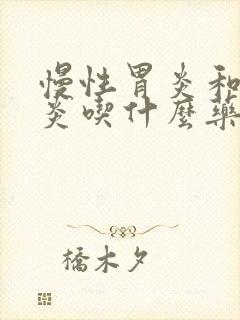 慢性胃炎和
炎喫什麼藥
橋木夕